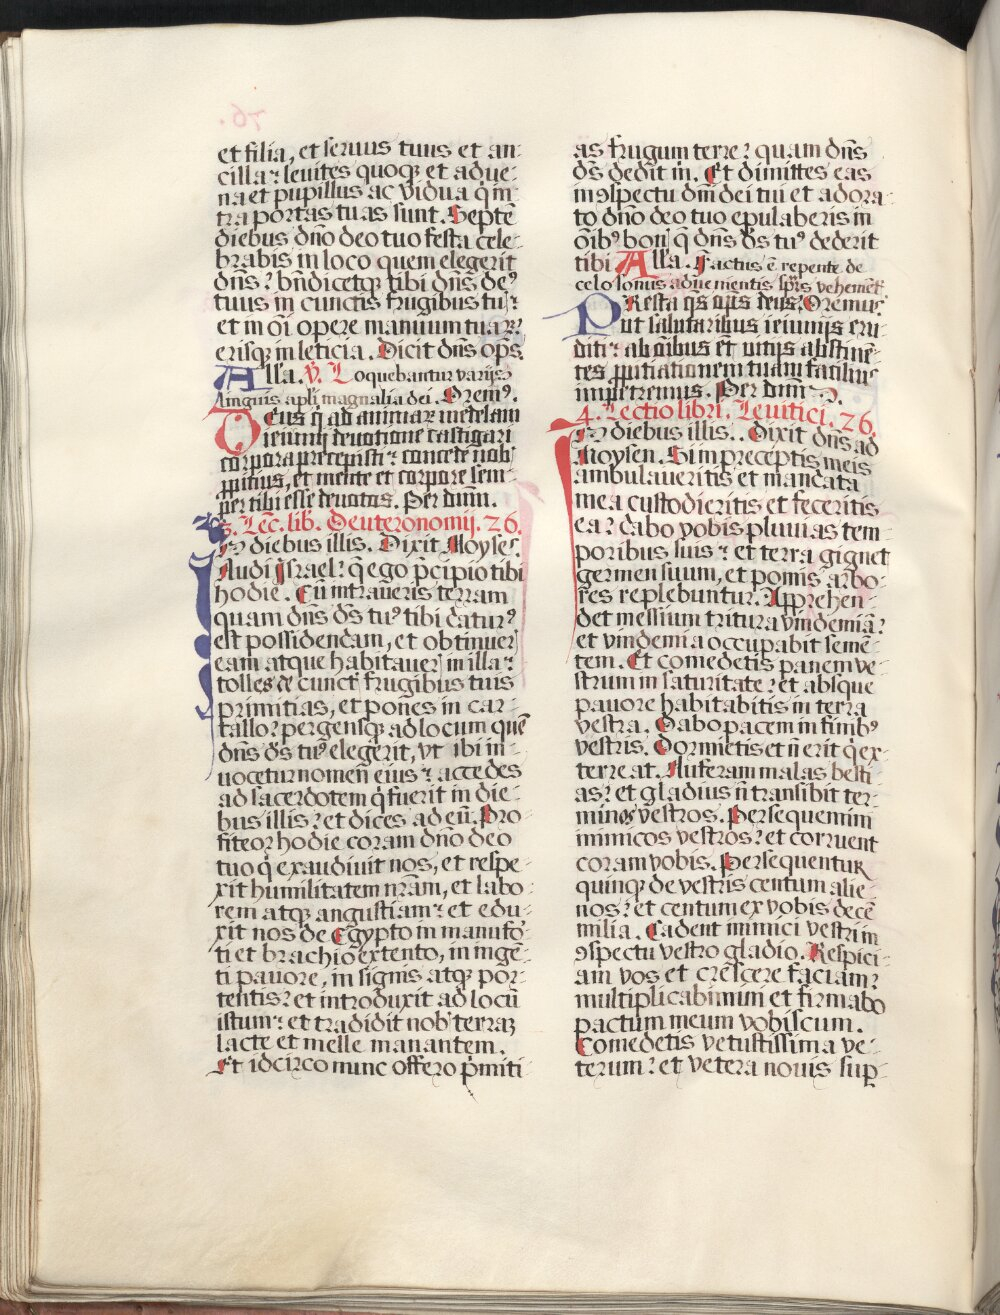 et filia, et seruus tuus et an-
cilla: leuites quoqꝫ et adue-
na et pupillus ac vidua q̄ in-
tra portas tuas sunt. Septē
diebus dño deo tuo festa cele-
brabis in loco quem elegerit
dñs: bñdicetqꝫ tibi dñs de⁹
tuus in cunctis frugibus tuis:
et in oī opere manuum tuaꝝ:
erisqꝫ in leticia. Dicit dñs ops.
Alla. ℣. Loquebantur varijs
linguis apli magnalia dei. Orem⁹.
Deus q̄ ad animaꝝ medelam
ieiunij deuotione castigari
corpora precepisti: concede nob̄
ꝓpitius, et mente et corpore sem-
per tibi esse deuotos. Per dnm.
3. Lēc. lib. Deuteronomij. 26.
In diebus illis. Dixit Moyses.
Audi Israel: q̄ ego p̄cipio tibi
hodie. Cū intraueris terram
quam dñs ds̄ tu⁹ tibi datur⁹
est possidendam, et obtinueꝭ
eam atque habitaueꝭ in illa:
tolles de cunctꝭ frugibus tuis
primitias, et pones in car-
tallo: pergensqꝫ ad locum quē
dñs ds̄ tu⁹ elegerit, vt ibi in-
uocetur nomen eius: accedes
ad sacerdotem q̄ fuerit in die-
bus illis: et dices ad eū. Pro-
fiteor hodie coram dño deo
tuo q̄ exaudiuit nos, et respe-
xit humilitatem nr̄am, et labo-
rem atqꝫ angustiam: et edu-
xit nos de Egypto in manu for-
ti et brachio extento, in ingē-
ti pauore, in signis atqꝫ por-
tentis: et introduxit ad locū
istum: et tradidit nob̄ terraꝫ
lacte et melle manantem.
Et idcirco nunc offero p̄miti-
as frugum terre: quam dñs
ds̄ dedit m̄. Et dimittes eas
in ꝯspectu dñi dei tui et adora-
to dño deo tuo epulaberis in
oīb⁹ bonꝭ q̄ dñs ds̄ tu⁹ dederit
tibi Alla. Factus ē repente de
celo sonus aduenientis spūs vehementꝭ
Oremus.
Presta qs oīps deus:
ut salutaribus ieiunijs eru-
diti: ab oībus et vitijs abstinē-
tes ꝓpitiationem tuam facilius
impetremus. Per dnm.
4. Lectio libri. Leuitici. 26.
In diebus illis. Dixit dñs ad
Moysen. Si in preceptis meis
ambulaueritis et mandata
mea custodieritis et feceritis
ea: dabo vobis pluuias tem-
poribus suis: et terra gignet
germen suum, et pomis arbo-
res replebuntur. Apprehen-
det messium tritura vindemiā:
et vindemia occupabit semē-
tem. Et comedetis panem ve-
strum in saturitate: et absque
pauore habitabitis in terra
vestra. Dabo pacem in finib⁹
vestris. Dormietis et n̄ erit q̄ ex-
terreat. Auferam malas besti-
as: et gladius n̄ transibit ter-
minos vestros. Persequemini
inimicos vestros: et corruent
coram vobis. Persequentur
quinqꝫ de vestris centum alie-
nos: et centum ex vobis decē
milia. Cadent inimici vestri in
ꝯspectu vestro gladio. Respici-
am vos et crescere faciam:
multiplicabimini et firmabo
pactum meum vobiscum.
Comedetis vetustissima ve-
terum: et vetera nouis suꝑ-